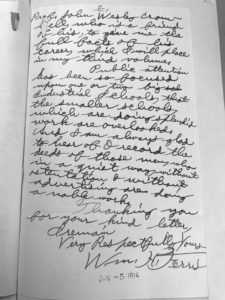 Prof. John Wesley Crom-
well, who is a friend
of his, to give me the
full facts of his
career, which I will place
in my third volume.
Public attention
has been so focused
upon one or two big
Industrial Schools that
the smaller schools
which are doing splendid
work are overlooked,
And I am always glad
to hear of & record the
deeds of those men, who
in a quiet way, without
ostentation & without
advertising are doing
a noble work.
Thanking you
for your kind letter
I remain
Very Respectfully Yours
Wm. H. Ferris
JAN -5 1914